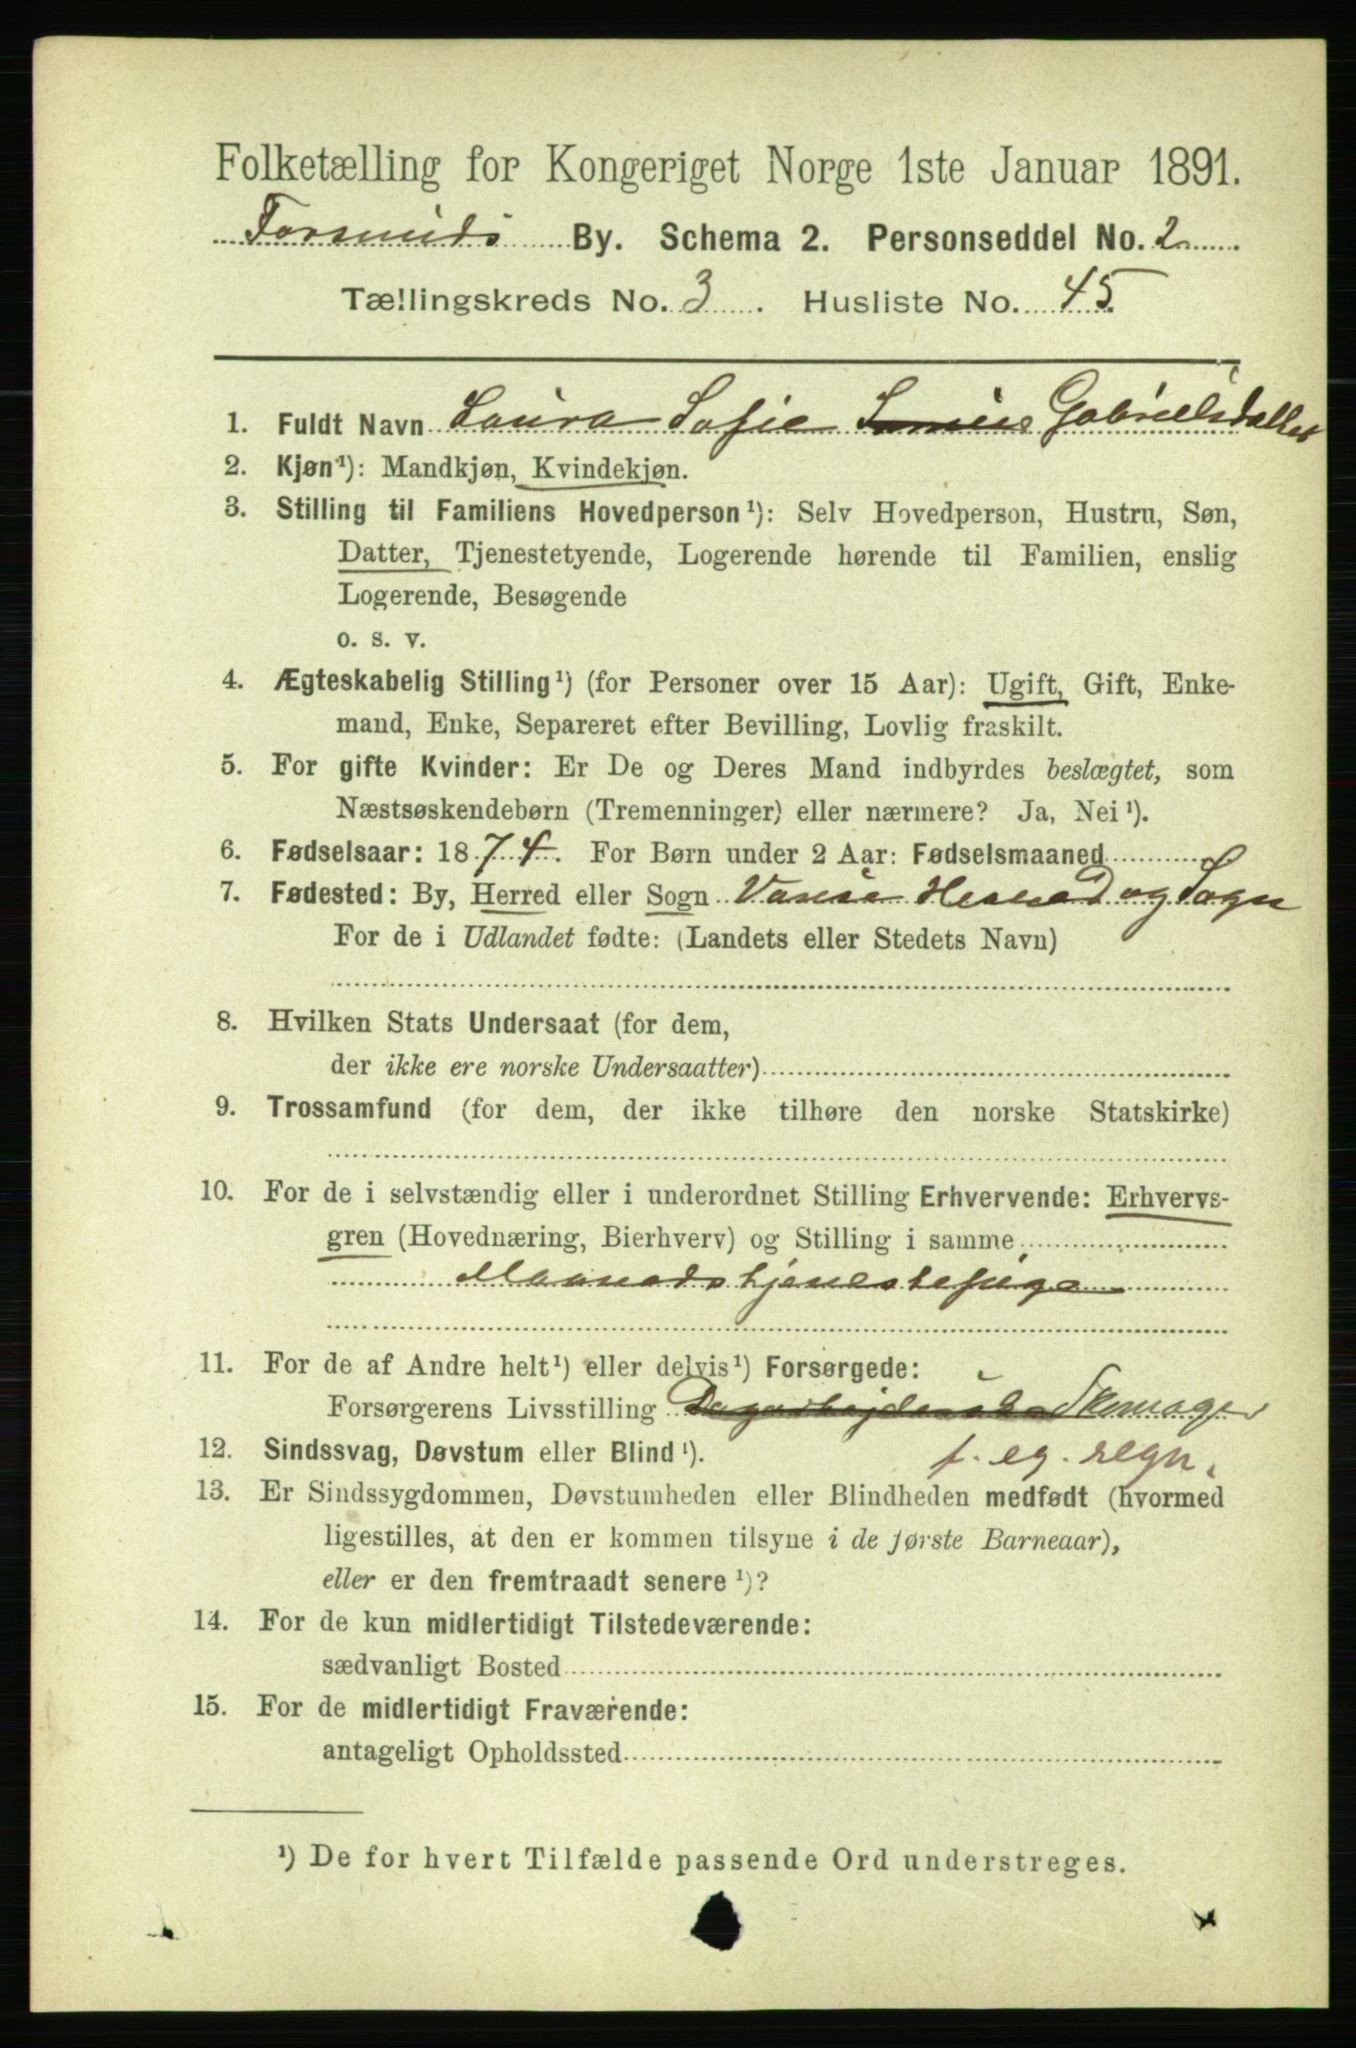 Folketælling for Kongeriget Norge 1ste Januar 1891.
Farsunds By. Schema 2. Personseddel No. 2
Tællingskreds No. 3. Husliste No. 45.
1. Fuldt Navn Laura Sofie Gabrielsdatter
2. Kjøn¹): Mandkjøn, Kvindekjøn.
3. Stilling til Familiens Hovedperson¹): Selv Hovedperson, Hustru, Søn,
Datter, Tjenestetyende, Logerende hørende til Familien, enslig
Logerende, Besøgende
o. s. v.
4. Ægteskabelig Stilling¹) (for Personer over 15 Aar): Ugift, Gift, Enke-
mand, Enke, Separeret efter Bevilling, Lovlig fraskilt.
5. For gifte Kvinder: Er De og Deres Mand indbyrdes beslægtet, som
Næstsøskendebørn (Tremenninger) eller nærmere? Ja, Nei¹).
6. Fødselsaar: 1874. For Børn under 2 Aar: Fødselsmaaned
7. Fødested: By, Herred eller Sogn Vanse Herred og Sogn
For de i Udlandet fødte: (Landets eller Stedets Navn)
8. Hvilken Stats Undersaat (for dem,
der ikke ere norske Undersaatter)
9. Trossamfund (for dem, der ikke tilhøre den norske Statskirke)
10. For de i selvstændig eller i underordnet Stilling Erhvervende: Erhvervs-
gren (Hovednæring, Bierhverv) og Stilling i samme
Maanedstjenestepige
11. For de af Andre helt¹) eller delvis¹) Forsørgede:
Forsørgerens Livsstilling Dagarbejderske Skomager
12. Sindssvag, Døvstum eller Blind¹). f. eg. regn.
13. Er Sindssygdommen, Døvstumheden eller Blindheden medfødt (hvormed
ligestilles, at den er kommen tilsyne i de første Barneaar),
eller er den fremtraadt senere¹)?
14. For de kun midlertidigt Tilstedeværende:
sædvanligt Bosted
15. For de midlertidigt Fraværende:
antageligt Opholdssted
¹) De for hvert Tilfælde passende Ord understreges.